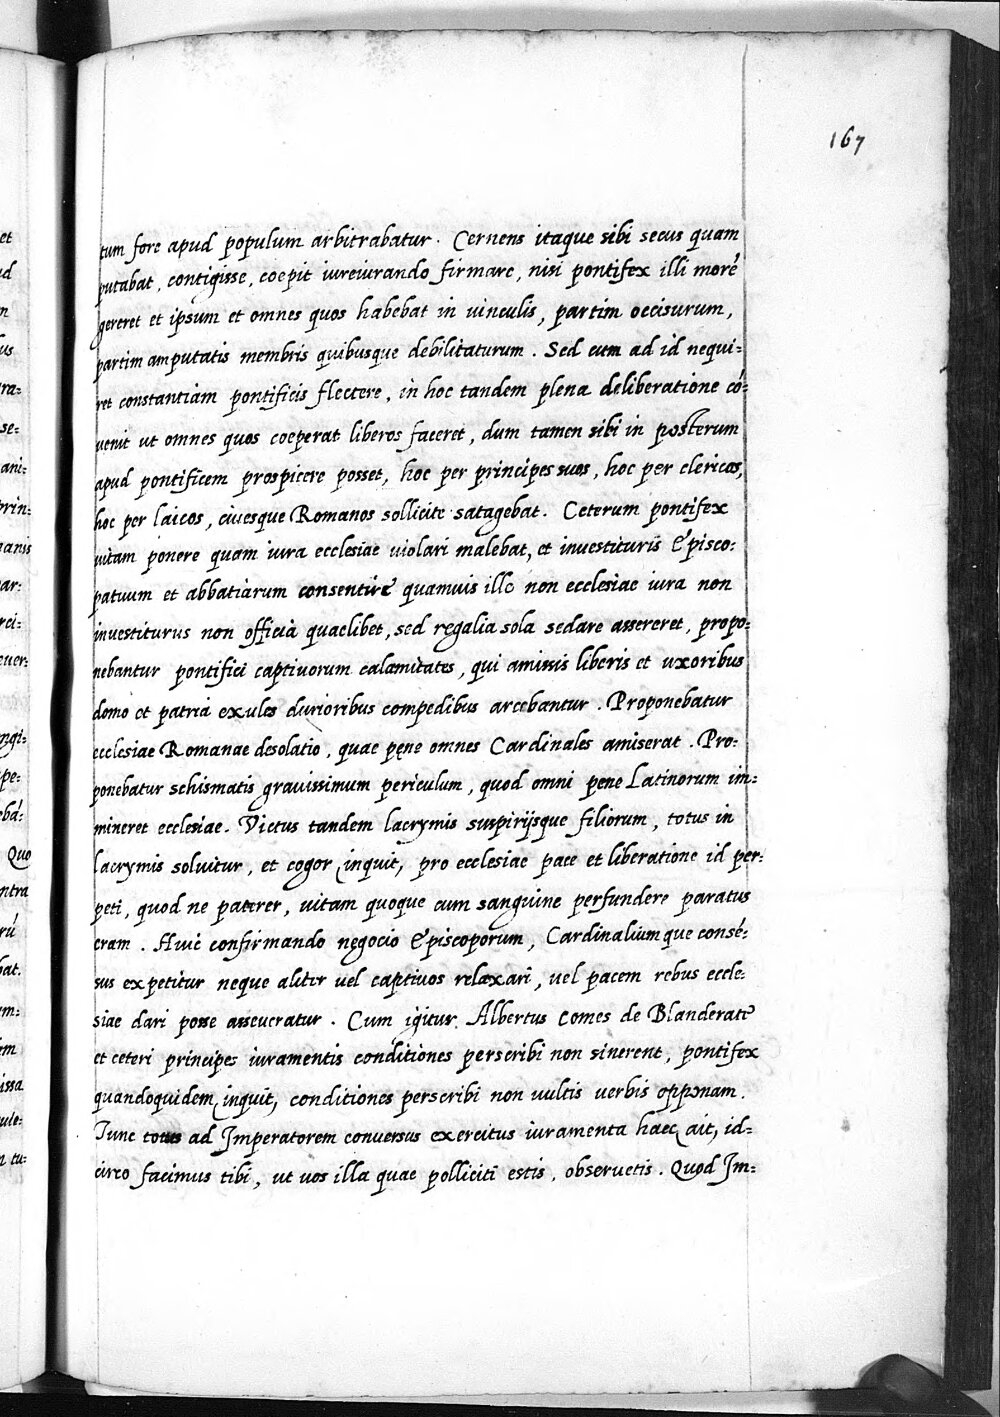 167
tum fore apud populum arbitrabatur. Cernens itaque sibi secus quam
putabat, contigisse, coepit iureiurando firmare, nisi pontifex illi moré
gereret et ipsum et omnes quos habebat in uinculis, partim occisurum,
partim amputatis membris quibusque debilitaturum. Sed cum ad id nequi=
ret constantiam pontificis flectere, in hoc tandem plena deliberatione có=
uenit ut omnes quos coeperat liberos faceret, dum tamen sibi in posterum
apud pontificem prospicere posset, hoc per principes suos, hoc per clericos,
hoc per laicos, ciuesque Romanos sollicite satagebat. Ceterum pontifex
uitam ponere quam iura ecclesiae uiolari malebat, et inuestituris Episco=
patuum et abbatiarum consentire quamuis ille non ecclesiae iura non
inuestiturus non officia quaelibet, sed regalia sola sedare assereret, propo=
nebantur pontifici captiuorum calamitates, qui amissis liberis et uxoribus
domo et patria exules durioribus compedibus arcebantur. Proponebatur
ecclesiae Romanae desolatio, quae pęne omnes Cardinales amiserat. Pro=
ponebatur schismatis grauissimum periculum, quod omni pene Latinorum im=
mineret ecclesiae. Victus tandem lacrymis suspirijsque filiorum, totus in
lacrymis soluitur, et cogor (inquit, pro ecclesiae pace et liberatione id per=
peti, quod ne paterer, uitam quoque cum sanguine perfundere paratus
eram. Huic confirmando negocio Episcoporum, Cardinaliumque consé=
sus expetitur neque aliter uel captiuos relaxari, uel pacem rebus eccle=
siae dari posse asseueratur. Cum igitur Albertus comes de Blanderate
et ceteri principes iuramentis conditiones perscribi non sinerent, pontifex
quandoquidem (inquit, conditiones perscribi non uultis uerbis opponam.
Tunc ad Imperatorem conuersus exercitus iuramenta haec (ait, id=
circo facimus tibi, ut uos illa quae polliciti estis, obseruetis. Quod Im=